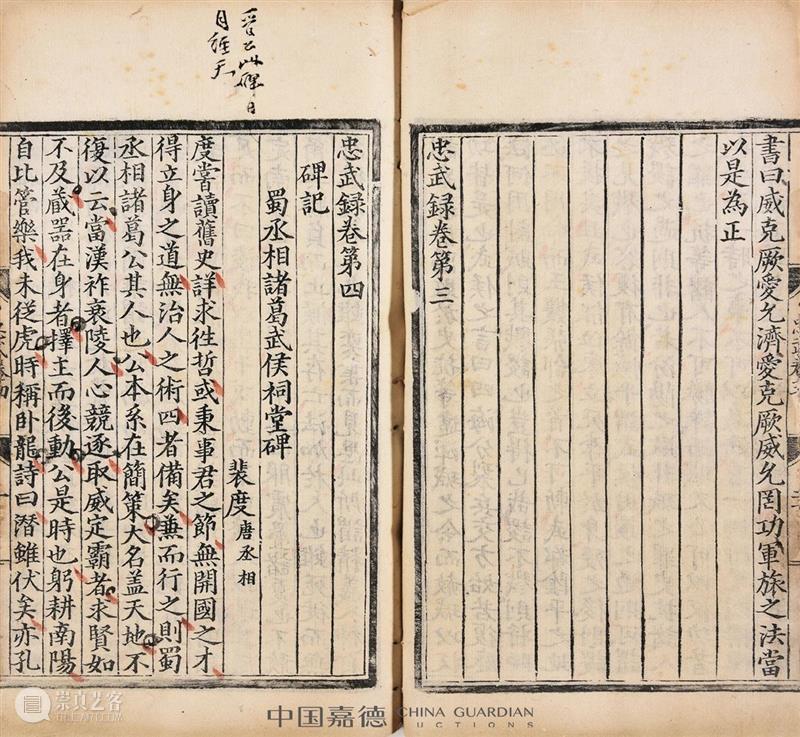 書曰威克厥愛允濟愛克厥威允罔功軍旅之法當
以是為正
忠武録卷第三
晋公此碑日
月經天
忠武録卷第四
碑記
蜀丞相諸葛武侯祠堂碑
裴度 唐丞相
度嘗讀舊史詳求徃哲或秉事君之節無開國之才
得立身之道無治人之術四者備矣兼而行之則蜀
丞相諸葛公其人也公本系在簡策大名盖天地不
復以云當漢祚衰陵人心競逐取威定霸者求賢如
不及藏器在身者擇主而後動公是時也躬耕南陽
自比管樂我未從虎時稱卧龍詩曰潛雖伏矣亦孔
崇真艺客
中国嘉德 CHINA GUARDIAN
AUCTIONS